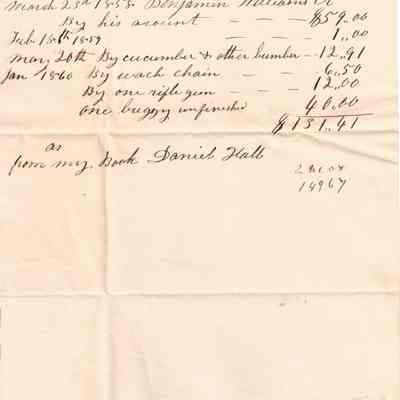 March 25th 1858 Benjamin Williams Cr
By his acount — — — $59.00
Feb 18th 1859 — — — 1.00
May, 20th By cucumber & other lumber — 12.91
Jan 1860 By wach chain — — 6.50
By one rifle gun — — — 12.00
one buggy unfinished 40.00
$131.41
as
from my Book Daniel Hall
14967